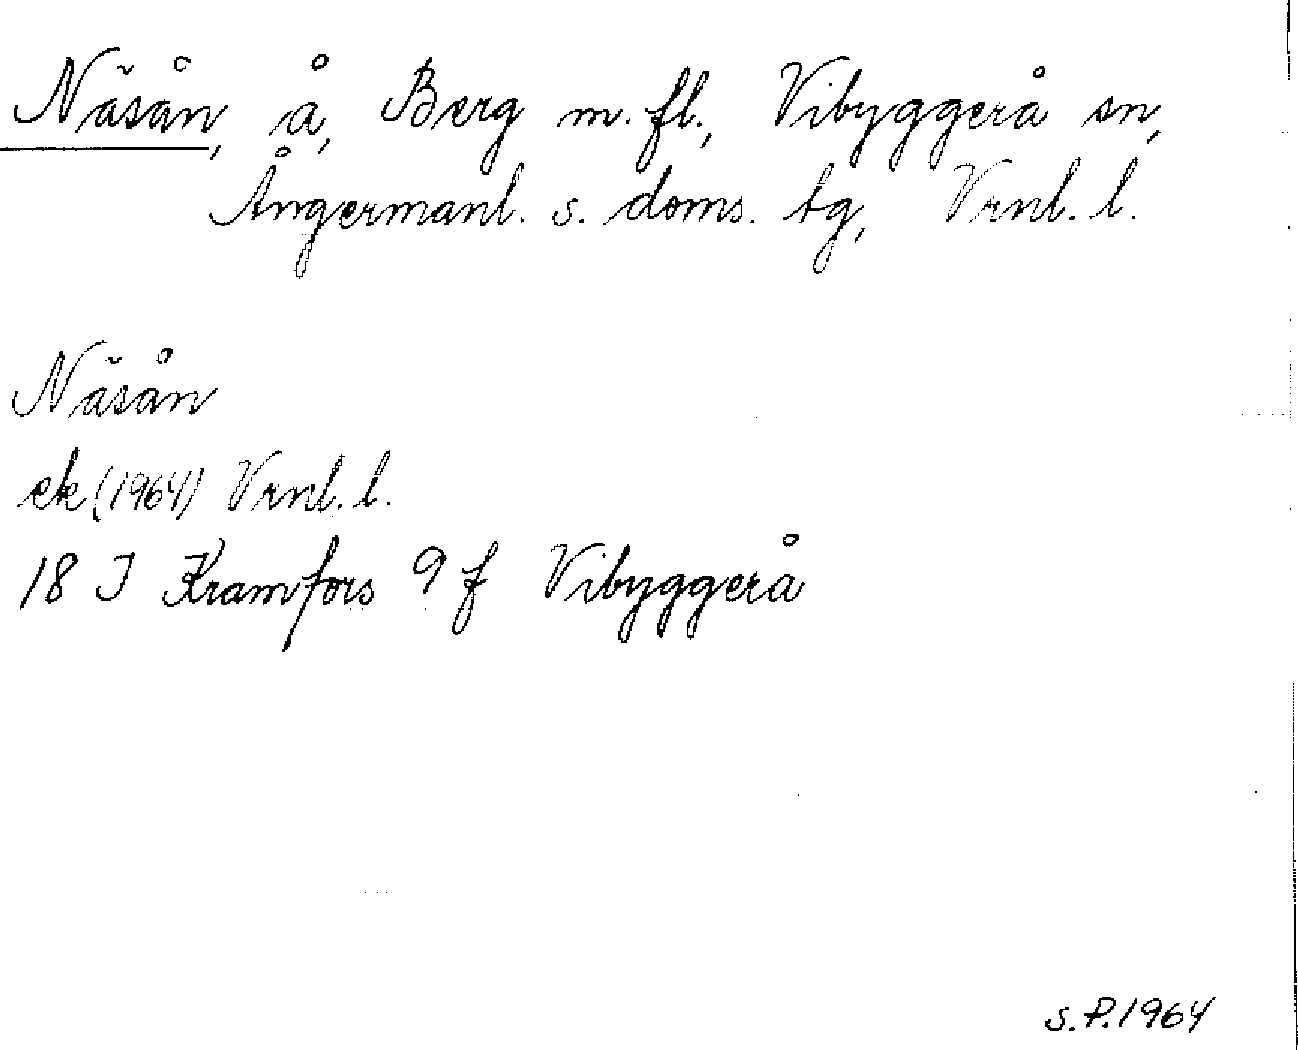 Näsån, å, Berg m. fl., Vibyggerå sn,
Ångermanl. s. doms. tg, Vrnl. l.
Näsån
ek (1964) Vrnl. l.
18 I Kramfors 9 f Vibyggerå
S.P. 1964